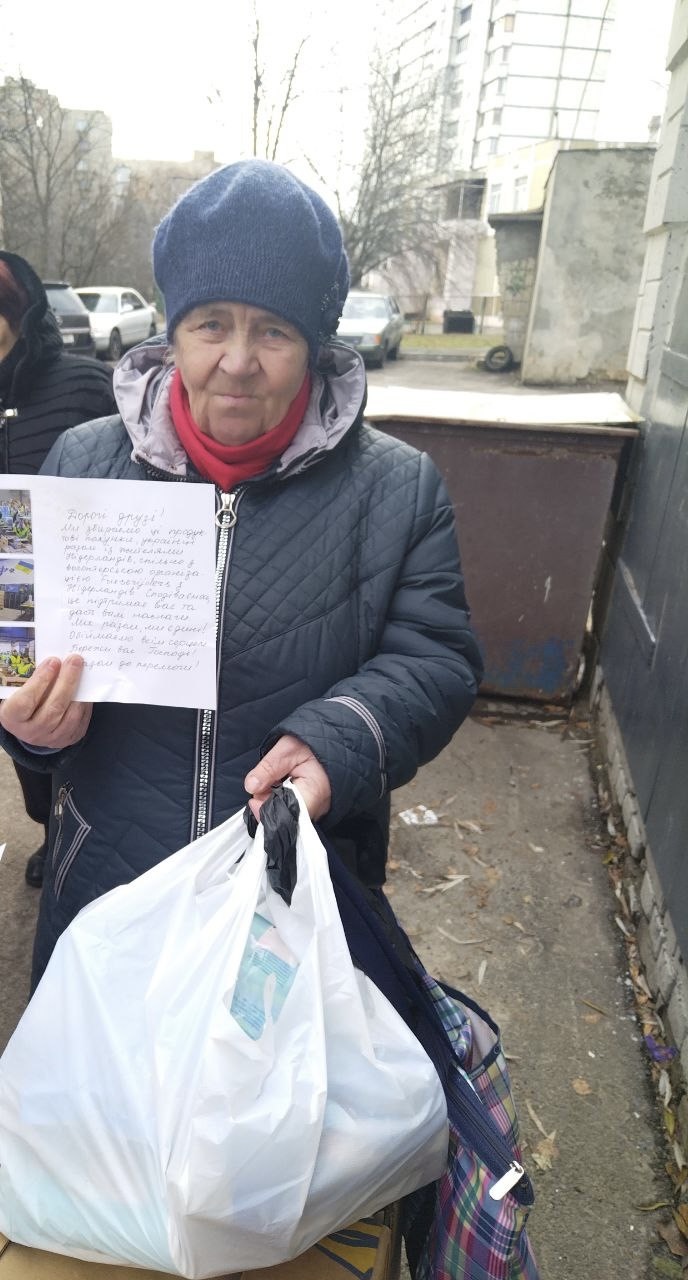 Дорогі друзі!
Ми збираємо ці продук
тові пакунки, українці
разом із жителями
Нідерландів, спільно з
волонтерською організа-
цією
Нідерландів. Сподіваємся,
це підтримає вас та
дасть вам наснаги.
Ми разом, ми єдині!
Обіймаємо всім серцем!
Бережи вас Господь!
Разом до перемоги!